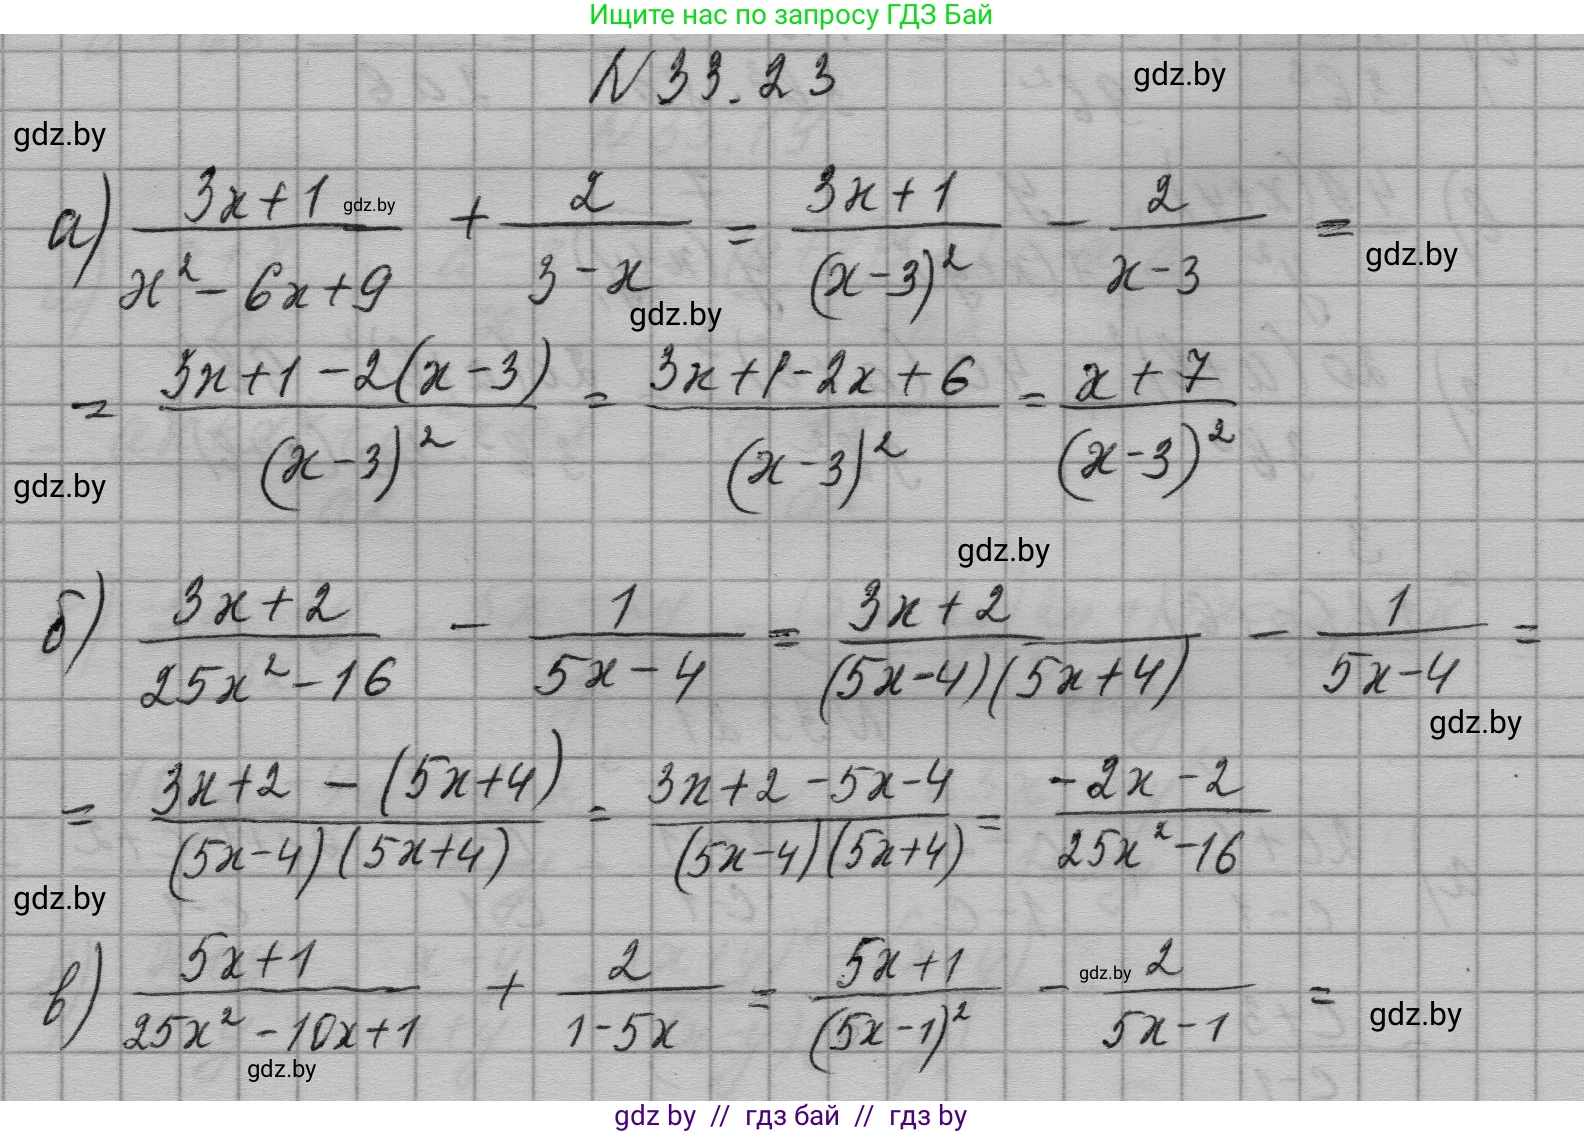 Ищите нас по запросу ГДЗ Бай
N 33.23
gdz.by
gdz.by
а) (3x+1)/(x²-6x+9) + 2/(3-x) = (3x+1)/(x-3)² - 2/(x-3) =
gdz.by
gdz.by
gdz.by
= (3x+1-2(x-3))/(x-3)² = (3x+1-2x+6)/(x-3)² = (x+7)/(x-3)²
gdz.by
gdz.by
б) (3x+2)/(25x²-16) - 1/(5x-4) = (3x+2)/((5x-4)(5x+4)) - 1/(5x-4) =
gdz.by
= (3x+2-(5x+4))/((5x-4)(5x+4)) = (3x+2-5x-4)/((5x-4)(5x+4)) = (-2x-2)/(25x²-16)
gdz.by
в) (5x+1)/(25x²-10x+1) + 2/(1-5x) = (5x+1)/(5x-1)² - 2/(5x-1) =
gdz.by
gdz.by
gdz.by
gdz by // гдз бай // гдз by